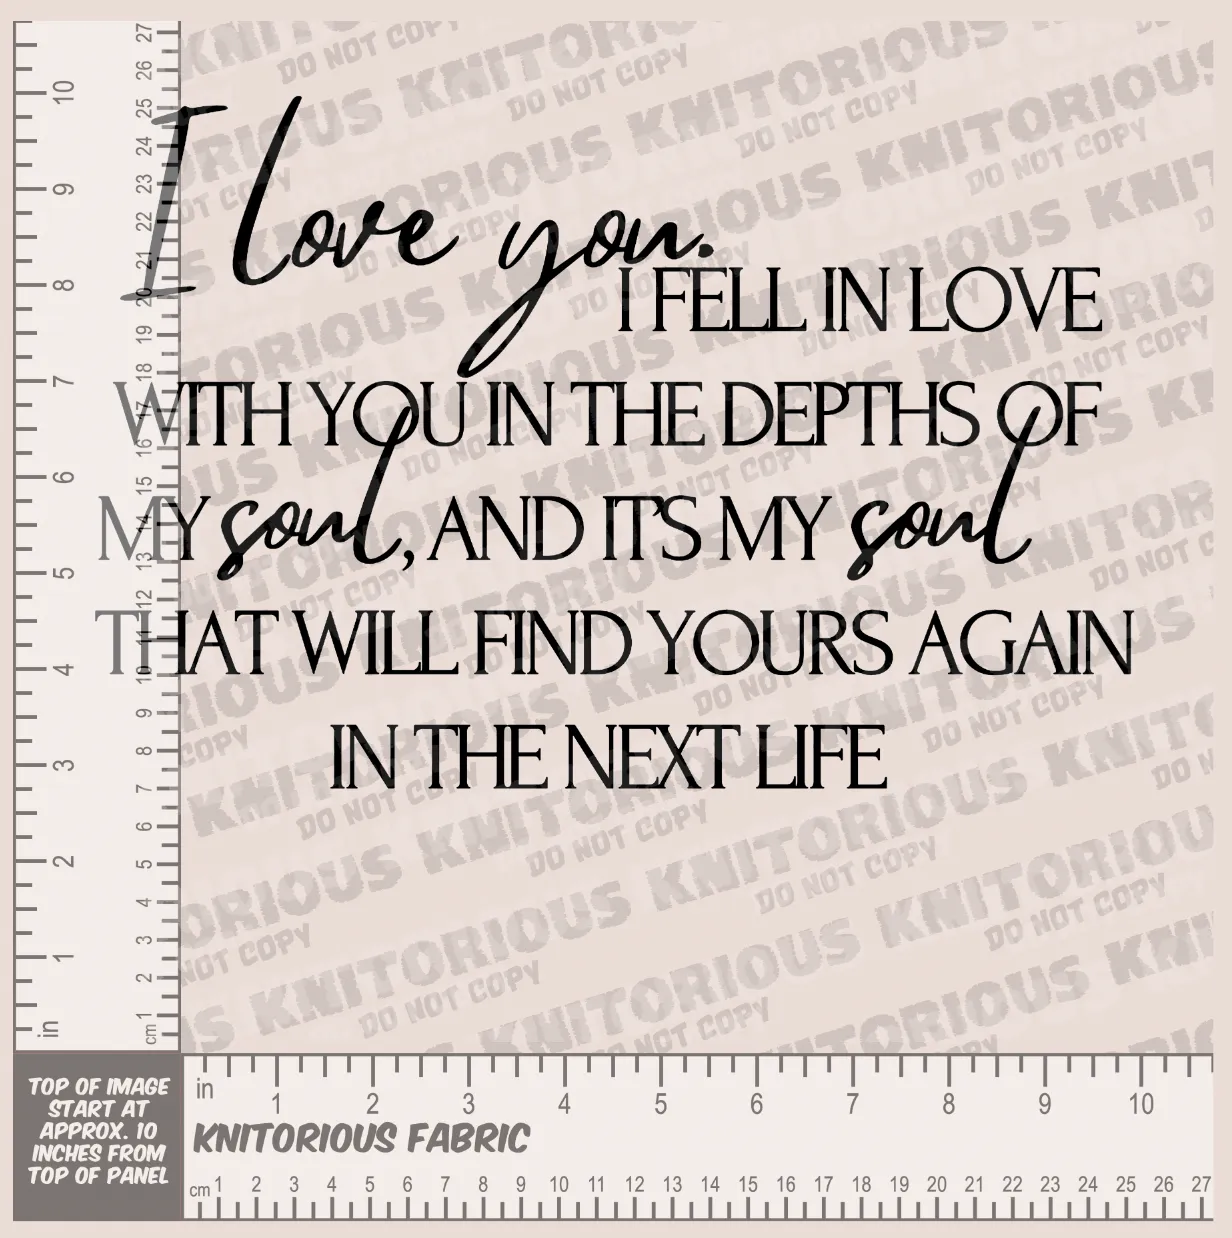 I love you.
I FELL IN LOVE
WITH YOU IN THE DEPTHS OF
MY soul, AND IT'S MY soul
THAT WILL FIND YOURS AGAIN
IN THE NEXT LIFE
KNITORIOUS
DO NOT COPY
10
9
8
7
6
5
4
3
2
1
in
27
26
25
24
23
22
21
20
19
18
17
16
15
14
13
12
11
10
9
8
7
6
5
4
3
2
1
cm
TOP OF IMAGE
START AT
APPROX. 10
INCHES FROM
TOP OF PANEL
in 1 2 3 4 5 6 7 8 9 10
KNITORIOUS FABRIC
cm 1 2 3 4 5 6 7 8 9 10 11 12 13 14 15 16 17 18 19 20 21 22 23 24 25 26 27